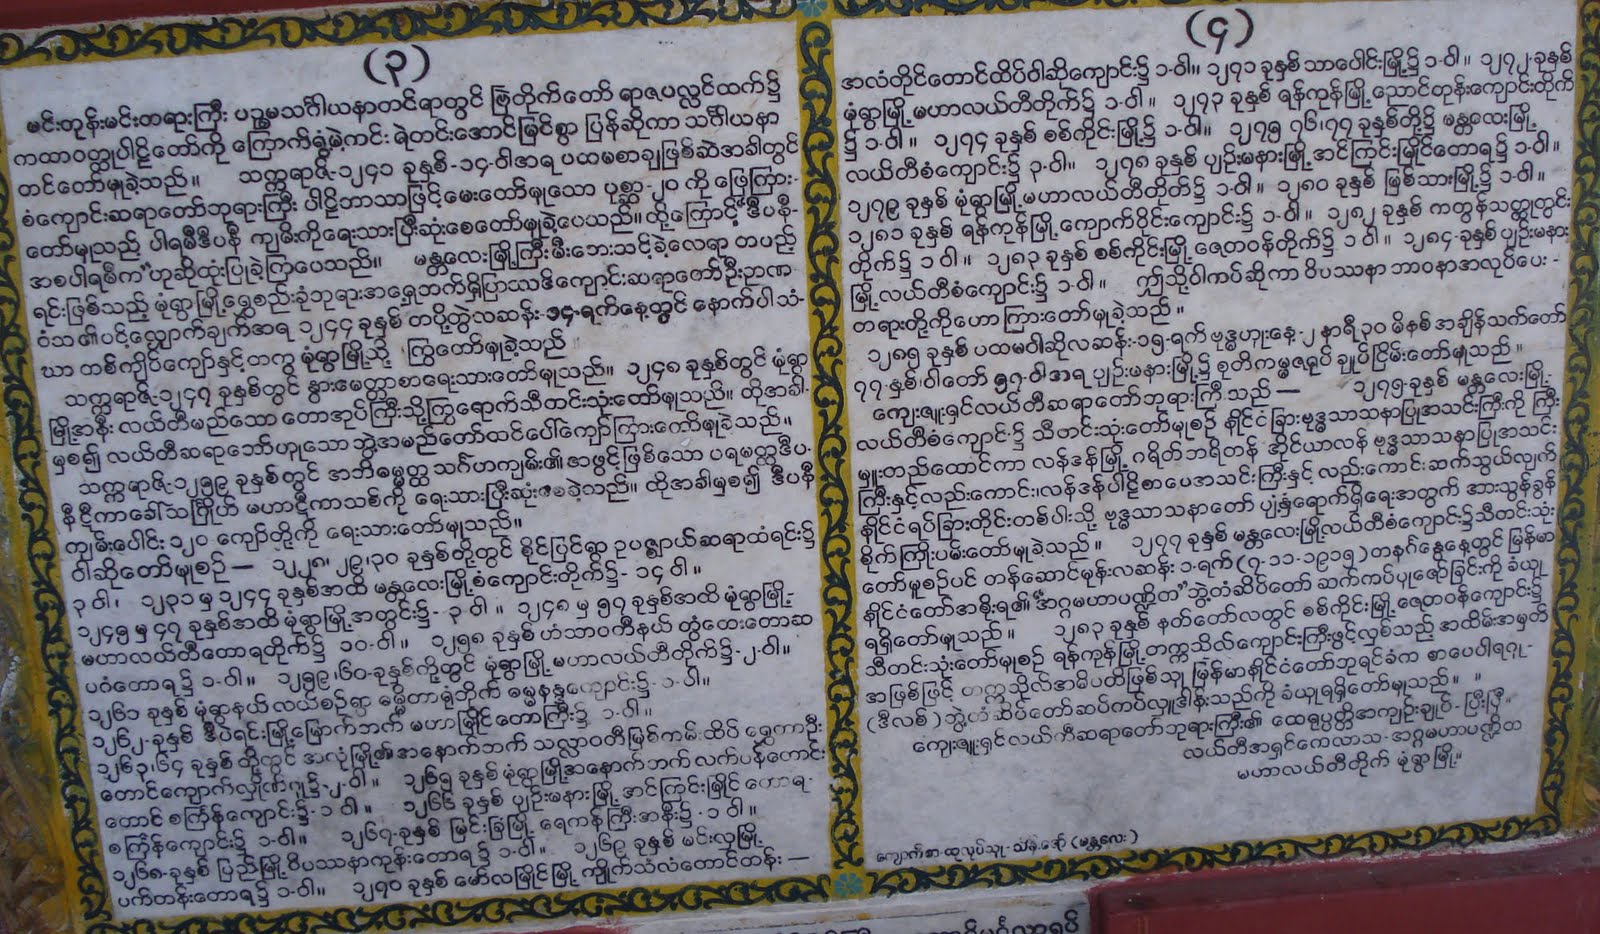 (၃)
မင်းတုန်းမင်းတရားကြီး ပဉ္စမသင်္ဂါယနာတင်ရာတွင် မြတိုက်တော် ရာဇပလ္လင်ထက်၌
ကထာဝတ္ထုပါဠိတော်ကို ကြောက်ရွံ့မဲ့ကင်း ရဲတင်းအောင်မြင်စွာ ပြန်ဆိုကာ သင်္ဂါယနာ
တင်တော်မူခဲ့သည်။ သက္ကရာဇ်-၁၂၄၁ ခုနှစ်-၁၄-ဝါအရ ပထမစာချဖြစ်ဆဲအခါတွင်
စံကျောင်းဆရာတော်ဘုရားကြီး ပါဠိဘာသာဖြင့်မေးတော်မူသော ပုစ္ဆာ-၂၀ ကို ဖြေကြား-
တော်မူသည့် ပါရမီဒီပနီ ကျမ်းကိုရေးသားပြီးဆုံးစေတော်မူခဲ့ပေသည်။ ထို့ကြောင့် "ဒီပနီ-
အစပါရမီက"ဟုဆိုထုံးပြုခဲ့ကြပေသည်။ မန္တလေးမြို့ကြီးမီးဘေးသင့်ခဲ့လေရာ တပည့်
ရင်းဖြစ်သည့် မုံရွာမြို့ရွှေစည်းခုံဘုရားအရှေ့ဘက်ရှိပြာသာဒ်ကျောင်းဆရာတော်ဦးဉာဏ
ဝံသ၏ပင့်လျှောက်ချက်အရ ၁၂၄၄ ခုနှစ် တပို့တွဲလဆန်း-၁၄-ရက်နေ့တွင် နောက်ပါ သံ-
ဃာ တစ်ကျိပ်ကျော်နှင့်တကွ မုံရွာမြို့သို့ ကြွတော်မူခဲ့သည်။
သက္ကရာဇ်-၁၂၄၇ ခုနှစ်တွင် နွားမေတ္တာစာရေးသားတော်မူသည်။ ၁၂၄၈ ခုနှစ်တွင် မုံရွာ
မြို့အနီး လယ်တီမည်သော တောအုပ်ကြီးသို့ကြွရောက်သီတင်းသုံးတော်မူသည်။ ထိုအခါ-
မှစ၍ လယ်တီဆရာတော်ဟူသော ဘွဲ့အမည်တော်ထင်ပေါ်ကျော်ကြားတော်မူခဲ့သည်။
သက္ကရာဇ်-၁၂၅၉ ခုနှစ်တွင် အဘိဓမ္မတ္ထ သင်္ဂဟကျမ်း၏အဖွင့်ဖြစ်သော ပရမတ္ထဒီပ-
နီဋီကာခေါ် မဟာဋီကာသစ်ကို ရေးသားပြီးဆုံးစေခဲ့သည်။ ထိုအခါမှစ၍ ဒီပနီ
ကျမ်းပေါင်း ၁၂၀ ကျော်တို့ကို ရေးသားတော်မူသည်။
ဝါဆိုတော်မူစဉ် — ၁၂၂၈၊ ၂၉၊၃၀ ခုနှစ်တို့တွင် စိုင်ပြင်ရွာ ဥပဇ္ဈာယ်ဆရာထံရင်း၌
၃ ဝါ၊ ၁၂၃၁ မှ ၁၂၄၄ ခုနှစ်အထိ မန္တလေးမြို့စံကျောင်းတိုက်၌- ၁၄ ဝါ။
၁၂၄၅ မှ ၄၇ ခုနှစ်အထိ မုံရွာမြို့အတွင်း၌- ၃-ဝါ။ ၁၂၄၈ မှ ၅၇ ခုနှစ်အထိ မုံရွာမြို့-
မဟာလယ်တီတောရတိုက်၌ ၁၀-ဝါ။ ၁၂၅၈ ခုနှစ် ဟံသာဝတီနယ် တွံတေးတောဆ
ပဂံတောရ၌ ၁-ဝါ။ ၁၂၅၉၊၆၀-ခုနှစ်တို့တွင် မုံရွာမြို့ မဟာလယ်တီတိုက်၌-၂-ဝါ။
၁၂၆၁ ခုနှစ် မုံရွာနယ်လယ်စဉ်ရွာ ဓမ္မနန္ဒကျောင်း၌- ၁-ဝါ။
၁၂၆၂-ခုနှစ် ဒီပဲရင်းမြို့မြောက်ဘက် မဟာမြိုင်တောကြီး၌ ၁-ဝါ။
၁၂၆၃၊၆၄ ခုနှစ်တို့တွင် အလုံမြို့၏အနောက်ဘက် သလ္လာဝတီမြစ်ကမ်းထိပ် ရွှေကာဦး
တောင်ကျောက်လှိုဏ်ဂူ၌-၂-ဝါ။ ၁၂၆၅ ခုနှစ် မုံရွာမြို့အနောက်ဘက် လက်ပန်တောင်း
တောင် စင်္ကြန်ကျောင်း၌- ၁ ဝါ။ ၁၂၆၆ ခုနှစ် ပျဉ်းမနားမြို့ အင်ကြင်းမြိုင် တောရ-
စင်္ကြန်ကျောင်း၌ ၁-ဝါ။ ၁၂၆၇-ခုနှစ် မြင်းခြံမြို့ ရေကန်ကြီးအနီး၌ - ၁ ဝါ။
၁၂၆၈-ခုနှစ် ပြည်မြို့ဝိပဿနာကုန်းတောရ၌ ၁-ဝါ။ ၁၂၆၉ ခုနှစ် မင်းလှမြို့
ပက်တန်းတောရ၌ ၁-ဝါ။ ၁၂၇၀ ခုနှစ် မော်လမြိုင်မြို့ ကျိုက်သံလံတောင်တန်း —
(၄)
အလံတိုင်တောင်ထိပ်ဝါဆိုကျောင်း၌ ၁-ဝါ။ ၁၂၇၁ ခုနှစ် သာပေါင်းမြို့၌ ၁-ဝါ။ ၁၂၇၂-ခုနှစ်
မုံရွာမြို့ မဟာလယ်တီတိုက်၌ ၁-ဝါ။ ၁၂၇၃ ခုနှစ် ရန်ကုန်မြို့ ညောင်တုန်းကျောင်းတိုက်
၌ ၁-ဝါ။ ၁၂၇၄ ခုနှစ် စစ်ကိုင်းမြို့၌ ၁-ဝါ။ ၁၂၇၅ ၇၆၊၇၇ ခုနှစ်တို့၌ မန္တလေးမြို့
လယ်တီစံကျောင်း၌ ၃-ဝါ။ ၁၂၇၈ ခုနှစ် ပျဉ်းမနားမြို့ အင်ကြင်းမြိုင်တောရ၌ ၁-ဝါ။
၁၂၇၉ ခုနှစ် မုံရွာမြို့မဟာလယ်တီတိုက်၌ ၁-ဝါ။ ၁၂၈၀ ခုနှစ် မြစ်သားမြို့၌ ၁-ဝါ။
၁၂၈၁ ခုနှစ် ရန်ကုန်မြို့ ကျောက်ဝိုင်းကျောင်း၌ ၁-ဝါ။ ၁၂၈၂ ခုနှစ် ကတွန်သတ္ထုတွင်း
တိုက်၌ ၁ ဝါ။ ၁၂၈၃ ခုနှစ် စစ်ကိုင်းမြို့ ဇေတဝန်တိုက်၌ ၁ ဝါ။ ၁၂၈၄-ခုနှစ် ပျဉ်းမနား
မြို့လယ်တီစံကျောင်း၌ ၁-ဝါ။ ဤသို့ဝါကပ်ဆိုကာ ဝိပဿနာ ဘာဝနာအလုပ်ပေး-
တရားတို့ကိုဟောကြားတော်မူခဲ့သည်။
၁၂၈၅ ခုနှစ် ပထမဝါဆိုလဆန်း-၁၅-ရက် ဗုဒ္ဓဟူးနေ့-၂ နာရီ ၃၀ မိနစ် အချိန်သက်တော်
၇၇-နှစ်၊ဝါတော် ၅၇-ဝါအရ ပျဉ်းမနားမြို့၌ စုတိကမ္မဇရုပ် ချုပ်ငြိမ်းတော်မူသည်။
ကျေးဇူးရှင်လယ်တီဆရာတော်ဘုရားကြီးသည် — ၁၂၇၅-ခုနှစ် မန္တလေးမြို့-
လယ်တီစံကျောင်း-၌ သီတင်းသုံးတော်မူစဉ် နိုင်ငံခြားဗုဒ္ဓသာသနာပြုအသင်းကြီးကို ကြီး
မှူးတည်ထောင်ကာ လန်ဒန်မြို့ ဂရိတ်ဘရိတန် အိုင်ယာလန် ဗုဒ္ဓသာသနာပြုအသင်း
ကြီးနှင့်လည်းကောင်း၊လန်ဒန်ပါဠိစာပေအသင်းကြီးနှင့် လည်းကောင်းဆက်သွယ်လျက်
နိုင်ငံရပ်ခြားတိုင်းတစ်ပါးသို့ ဗုဒ္ဓသာသနာတော် ပျံ့နှံ့ရောက်ရှိရေးအတွက် အားသွန်ခွန်
စိုက်ကြိုးပမ်းတော်မူခဲ့သည်။ ၁၂၇၇ ခုနှစ် မန္တလေးမြို့လယ်တီစံကျောင်း၌သီတင်းသုံး
တော်မူစဉ်ပင် တန်ဆောင်မုန်းလဆန်း ၁-ရက်(၇-၁၁-၁၉၁၅) တနင်္ဂနွေနေ့တွင် မြန်မာ
နိုင်ငံတော်အစိုးရ၏ "အဂ္ဂမဟာပဏ္ဍိတ" ဘွဲ့တံဆိပ်တော် ဆက်ကပ်ပူဇော်ခြင်းကို ခံယူ
ရရှိတော်မူသည်။ ၁၂၈၃ ခုနှစ် နတ်တော်လတွင် စစ်ကိုင်းမြို့ ဇေတဝန်ကျောင်း၌
သီတင်းသုံးတော်မူစဉ် ရန်ကုန်မြို့တက္ကသိုလ်ကျောင်းကြီးဖွင့်လှစ်သည့် အထိမ်းအမှတ်
အဖြစ်ဖြင့် တက္ကသိုလ်အဓိပတိဖြစ်သူ မြန်မာနိုင်ငံတော်ဘုရင်ခံက စာပေပါရဂူ-
(ဒီလစ်) ဘွဲ့တံဆိပ်တော်ဆပ်ကပ်လှူဒါန်းသည်ကို ခံယူရရှိတော်မူသည်။ ။
ကျေးဇူးရှင်လယ်တီဆရာတော်ဘုရားကြီး၏ ထေရုပ္ပတ္တိအကျဉ်းချုပ်- ပြီးပြီ။
လယ်တီအရှင်ကေလာသ-အဂ္ဂမဟာပဏ္ဍိတ
မဟာလယ်တီတိုက် မုံရွာမြို့။
ကျောက်စာ-ထုလုပ်သူ- (မန္တလေး)